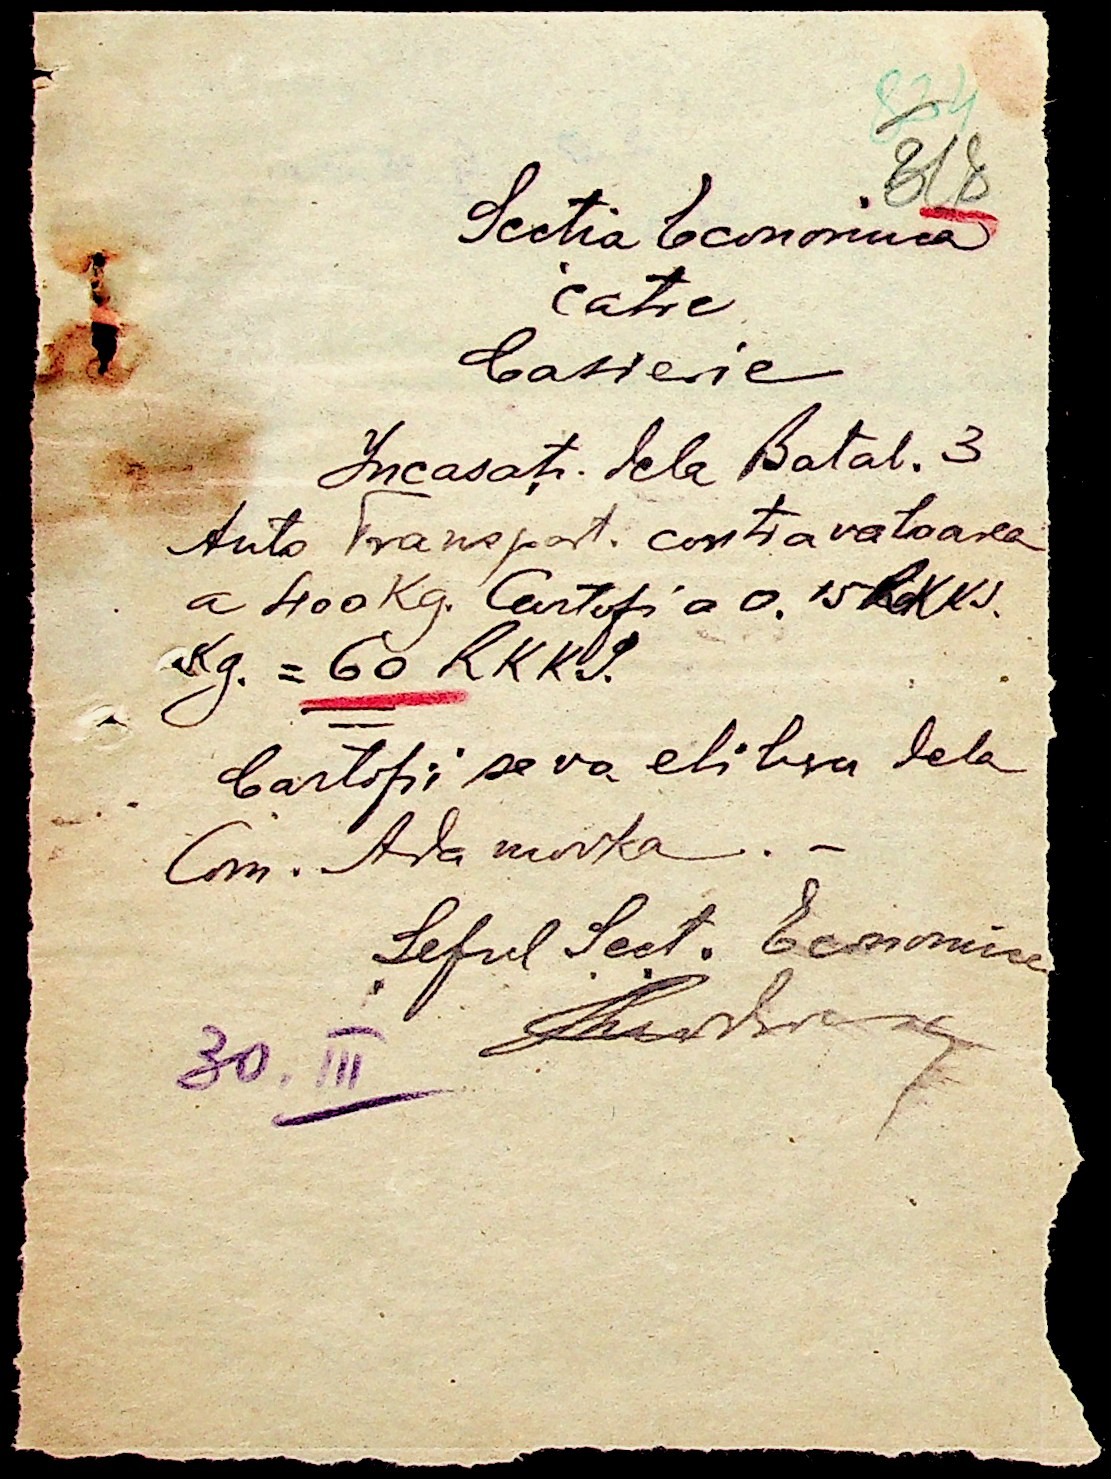 834
818
Sectia Economica
catre
Casierie
Incasați dela Batal. 3
Auto Transport. contravaloarea
a 400 Kg. Cartofi a 0.15 RKKS.
Kg. = 60 RKKS.
Cartofii se va elibera dela
Com. Adamovka. -
Șeful Secț. Economice
30. III